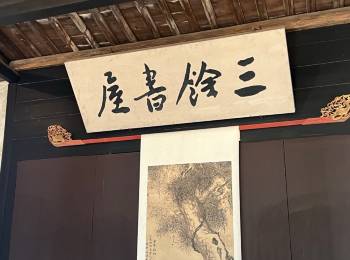 三餘書屋